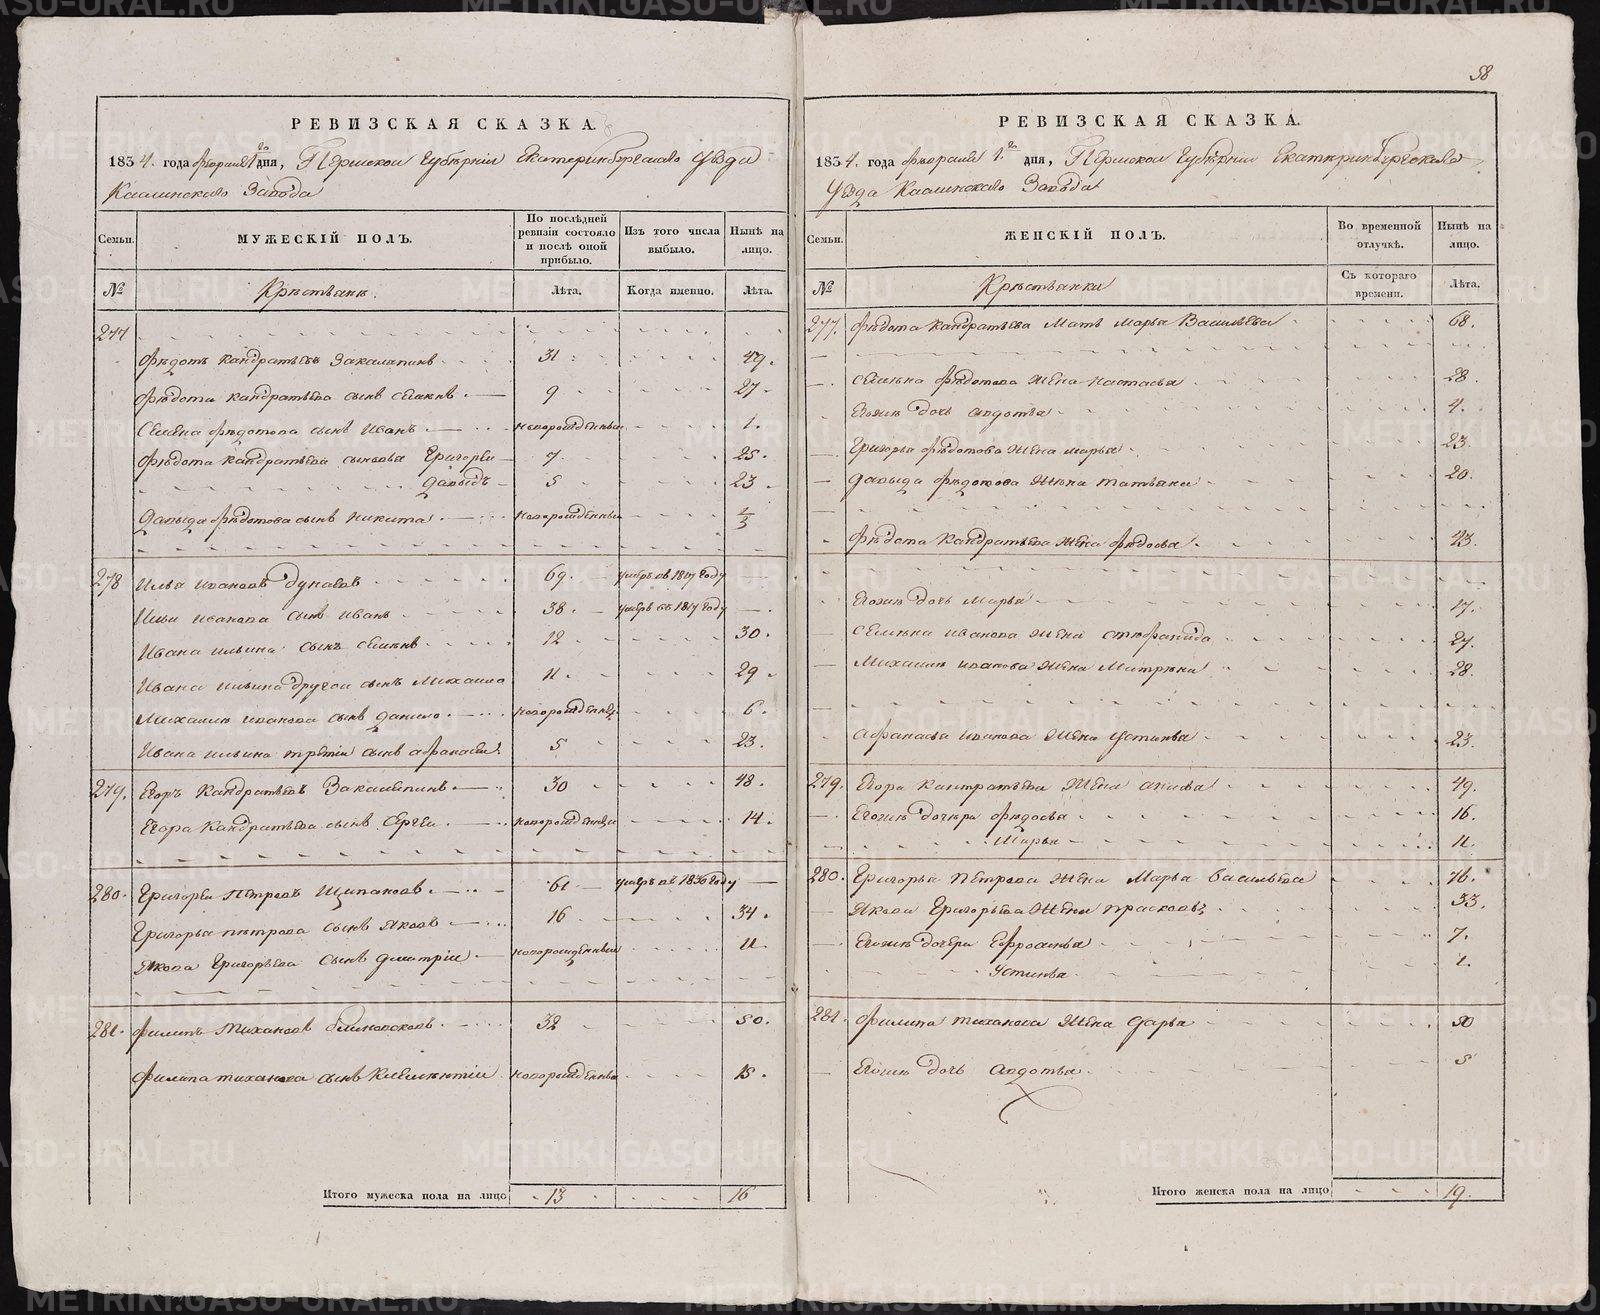 58
РЕВИЗСКАЯ СКАЗКА.
1834. года февраля 1го дня, Пермской Губѣрніи Екатеринбургскаго уѣзда
Каслинскаго Завода
Семьи.
МУЖЕСКІЙ ПОЛЪ.
По послѣдней ревизіи состояло и послѣ оной прибыло.
Изъ того числа выбыло.
Нынѣ на лицо.
№
Крѣстьянѣ.
Лѣта.
Когда именно.
Лѣта.
277
Фѣдотъ Кандратьевъ 31 49.
Фѣдота Кандратьева сынъ Семѣнъ 9 27
Семѣна Фѣдотова сынъ Иванъ новорожденный 1.
Фѣдота Кандратьева сыновья Григорѣй 7 25.
Давыдъ 5 23
Давыда Фѣдотова сынъ Никита новорожденный
278 Илья Ивановъ Дунаевъ 69. умеръ въ году
Ильи Иванова сынъ Иванъ 38. умеръ въ году
Ивана Ильина сынъ Семѣнъ 12 30.
Ивана Ильина другой сынъ Михаило 11 29
Михаила Иванова сынъ Данило новорожденный 6.
Ивана Ильина третій сынъ Афанасѣй 5 23.
279. Егоръ Кандратьевъ 30 48.
Егора Кандратьева сынъ Сергѣй новорожденный 14.
280. Григорѣй Петровъ Щипановъ 61 умеръ въ году
Григорья Петрова сынъ Яковъ 16 34.
Якова Григорьева сынъ Дмитрій новорожденный 11
281. Филипъ Тихановъ 32 50.
Филипа Тиханова сынъ Клементій новорожденный 15.
Итого мужеска пола на лицо 13 16
РЕВИЗСКАЯ СКАЗКА.
1834. года февраля 1го дня, Пермской Губѣрніи Екатеринбургскаго
уѣзда Каслинскаго Завода
Семьи.
ЖЕНСКІЙ ПОЛЪ.
Во временной отлучкѣ.
Нынѣ на лицо.
№
Крѣстьянки
Съ котораго времени.
Лѣта.
277. Фѣдота Кандратьева мать Марья Васильева 68.
Семѣна Фѣдотова жена Настасья 28
Егожъ дочь Авдотья 4.
Григорья Фѣдотова жена Марья 23
Давыда Фѣдотова жена Татьяна 20.
Фѣдота Кандратьева жена Фѣдосья 43
Егожъ дочь Марья 17.
Семѣна Иванова жена Стефанида 27.
Михаила Иванова жена Митрѣна 28
Афанасья Иванова жена Устинья 23
279. Егора Кантратьева жена Анисья 49.
Егожъ дочери Фѣдосья 16.
Марья 11.
280. Григорья Петрова жена Марья Васильева 76.
Якова Григорьева жена Прасковья 33.
Егожъ дочери Ефросинья 7.
Устинья 1.
281. Филипа Тиханова жена Дарья 50
Егожъ дочь Авдотья 5
Итого женска пола на лицо 19.